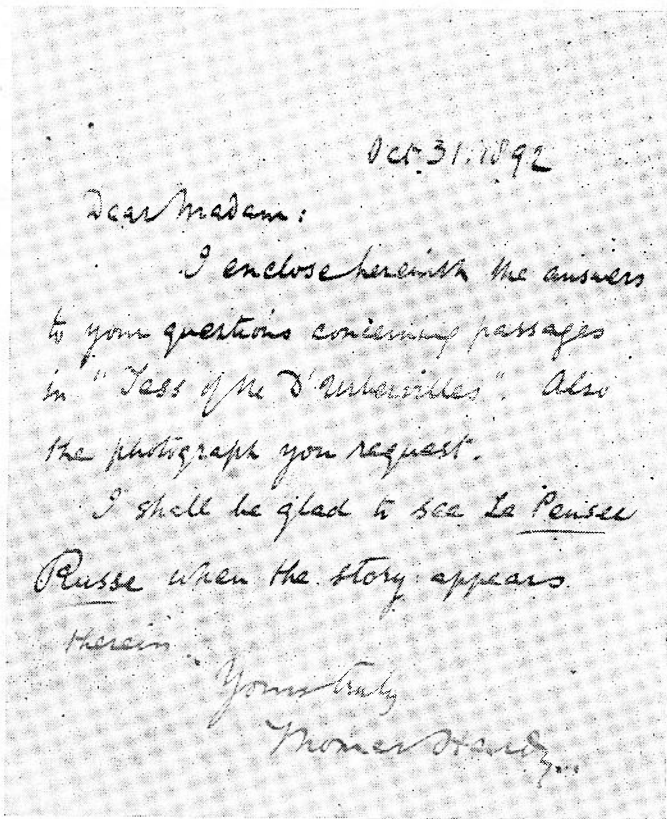 Oct. 31. 1892
Dear Madam:
I enclose herewith the answers
to your questions concerning passages
in "Tess of the D'Urbervilles". Also
the photograph you request.
I shall be glad to see La Pensée
Russe when the story appears
therein.
Yours truly
Thomas Hardy.